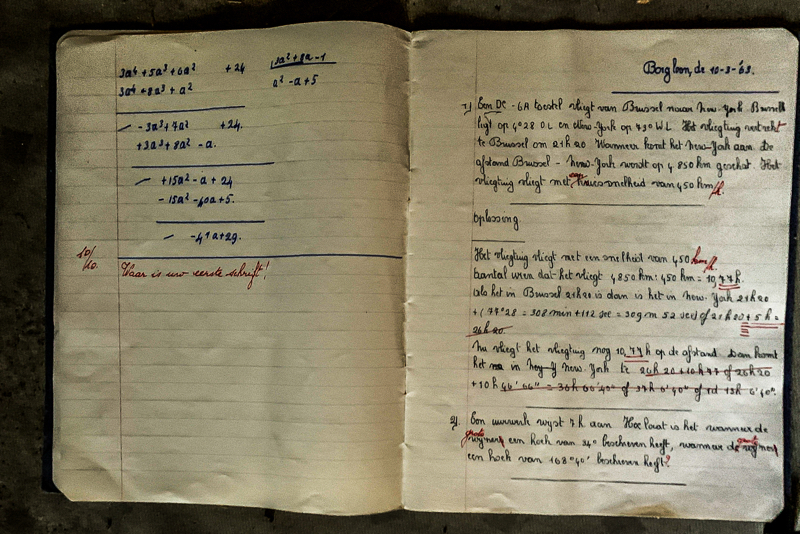 3a⁴ + 5a³ + 6a² + 24
3a² + 8a - 1
3a⁴ + 8a³ + a²
a² - a + 5
- 3a³ + 7a² + 24.
+ 3a³ + 8a² - a.
+ 15a² - a + 24
- 15a² - 40a + 5.
- 41a + 29.
10/10.
Waar is uw eerste schrift!
Borgloon, de 10-3-'63.
1) Een DC-6A toestel vliegt van Brussel naar New-York. Brussel
ligt op 4°28 O.L en New-York op 73° W.L. Het vliegtuig vertrekt
te Brussel om 21 h 20. Wanneer komt het New-York aan. De
afstand Brussel - New-York wordt op 4 850 km geschat. Het
vliegtuig vliegt met een kruissnelheid van 450 km/h.
Oplossing.
Het vliegtuig vliegt met een snelheid van 450 km/h.
Aantal uren dat het vliegt 4850 km : 450 km = 10,77 h.
Als het in Brussel 21h20 is dan is het in New-York 21h20
+ (77°28 = 308 min + 112 sec = 309 m 52 sec) of 21h20 + 5 h =
26h20.
Nu vliegt het vliegtuig nog 10,77 h op de afstand. Dan komt
het in New-York te 26h20 + 10h77 of 26h20
+ 10h 46' 66" = 36h 66' 40" of 37h 6' 40" of 1d 13h 6' 40".
2) Een uurwerk wijst 7 h aan. Hoe laat is het wanneer de
grote wijzer een hoek van 24° beschreven heeft, wanneer de grote wijzer
een hoek van 168°40' beschreven heeft?